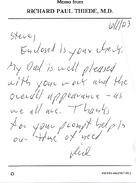 Memo from
RICHARD PAUL THIEDE, M.D.
Steve,
Enclosed is your check.
My Dad is well pleased
with your work and the
overall appearance - as
we all are. Thanks
for your prompt help in
our time of need